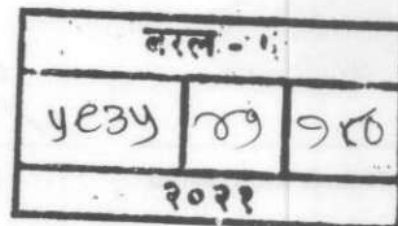 बरल - १
५९३५ १४०
२०२१